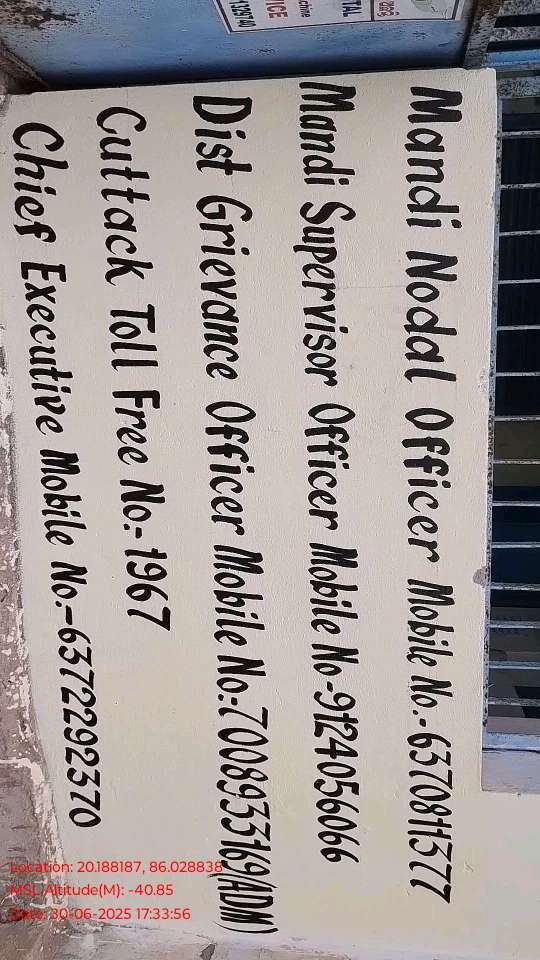 Mandi Nodal Officer Mobile No.-6370811377
Mandi Supervisor Officer Mobile No-9124056066
Dist Grievance Officer Mobile No.-7008953169(ADM)
Cuttack Toll Free No:-1967
Chief Executive Mobile No:-6372292370
Location: 20.188187, 86.028838
MSL Altitude(M): -40.85
Date: 30-06-2025 17:33:56